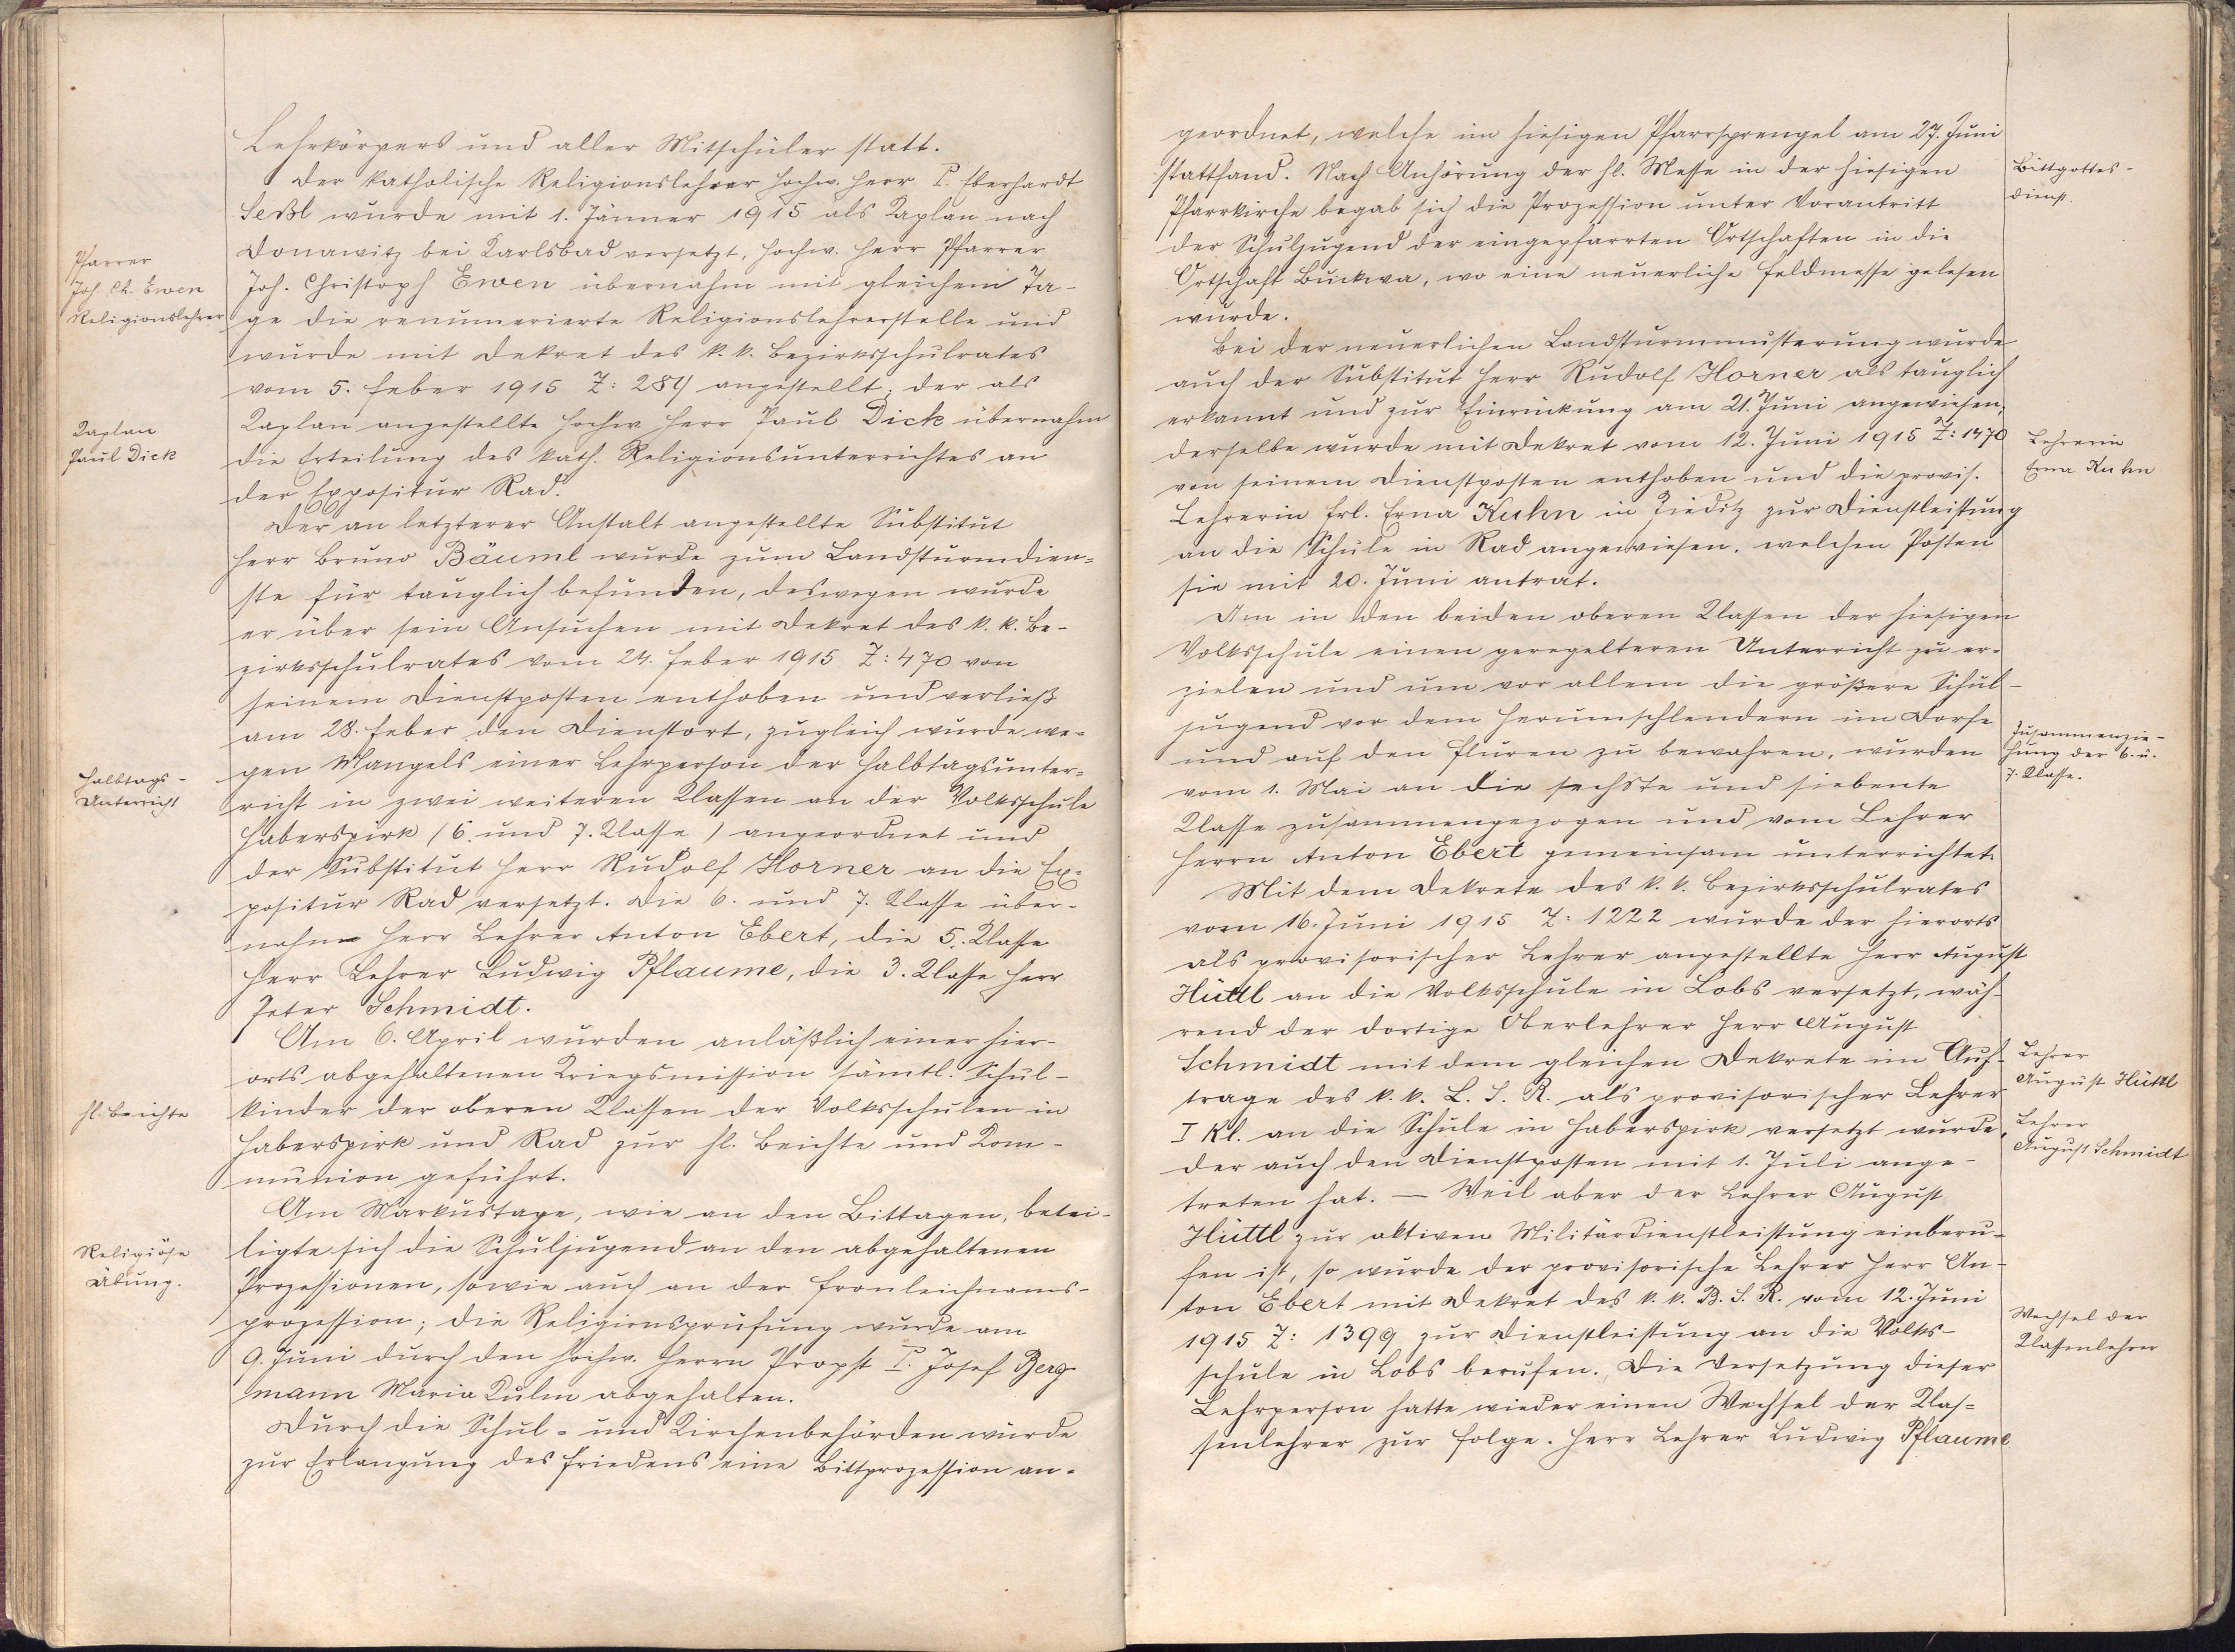 Lehrkörpers und aller Mitschüler statt.
Der katholische Religionslehrer hochw. Herr P. Eberhardt
Seßl wurde mit 1. Jänner 1915 als Kaplan nach
Donawitz bei Karlsbad versetzt, hochw. Herr Pfarrer
Pfarrer
Joh. Ch. Ewen
Religionslehrer
Joh. Christoph Ewen übernahm mit gleichem Ta-
ge die renumerierte Religionslehrerstelle und
wurde mit Dekret des k. k. Bezirksschulrates
vom 5. Feber 1915 Z: 284 angestellt; der als
Kaplan
Paul Dick
Kaplan angestellte hochw. Herr Paul Dick übernahm
die Erteilung des kath. Religionsunterrichtes an
der Expositur Rad.
Der an letzterer Anstalt angestellte Substitut
Herr Bruno Bäuml wurde zum Landsturmdien-
ste für tauglich befunden, deswegen wurde
er über sein Ansuchen mit Dekret des k. k. Be-
zirksschulrates vom 24. Feber 1915 Z: 470 von
seinem Dienstposten enthoben und verließ
am 28. Feber den Dienstort, zugleich wurde we-
Halbtags-
Unterricht
gen Mangels einer Lehrperson der Halbtagsunter-
richt in zwei weiteren Klassen an der Volksschule
Haberspirk (6. und 7. Klasse) angeordnet und
der Substitut Herr Rudolf Horner an die Ex-
positur Rad versetzt. Die 6. und 7. Klasse über-
nahm Herr Lehrer Anton Ebert, die 5. Klasse
Herr Lehrer Ludwig Pflaume, die 3. Klasse Herr
Peter Schmidt.
Am 6. April wurden anläßlich einer hier-
orts abgehaltenen Kriegsmission sämtl. Schul-
hl. Beichte
kinder der oberen Klassen der Volksschulen in
Haberspirk und Rad zur hl. Beichte und Kom-
munion geführt.
Am Markustage, wie an den Bittagen, betei-
Religiöse
Übung.
ligte sich die Schuljugend an den abgehaltenen
Prozessionen, sowie auch an der Fronleichnams-
prozession; die Religionsprüfung wurde am
9. Juni durch den hochw. Herrn Propst P. Josef Berg-
mann Maria Kulm abgehalten.
Durch die Schul- und Kirchenbehörden wurde
zur Erlangung des Friedens eine Bittprozession an-
geordnet, welche im hiesigen Pfarrsprengel am 27. Juni
stattfand. Nach Anhörung der hl. Messe in der hiesigen
Bittgottes-
dienst.
Pfarrkirche begab sich die Prozession unter Vorantritt
der Schuljugend der eingepfarrten Ortschaften in die
Ortschaft Buckwa, wo eine neuerliche Feldmesse gelesen
wurde.
Bei der neuerlichen Landsturmmusterung wurde
auch der Substitut Herr Rudolf Horner als tauglich
erkannt und zur Einrückung am 21. Juni angewiesen;
derselbe wurde mit Dekret vom 12. Juni 1915 Z: 1470
Lehrerin
Erna Kuhn
von seinem Dienstposten enthoben und die provis.
Lehrerin Frl. Erna Kuhn in Zieditz zur Dienstleistung
an die Schule in Rad angewiesen, welchen Posten
sie mit 20. Juni antrat.
Um in den beiden oberen Klassen der hiesigen
Volksschule einen geregelteren Unterricht zu er-
zielen und um vor allem die größere Schul-
jugend vor dem Herumschlendern im Dorfe
und auf den Fluren zu bewahren, wurden
Zusammenzie-
hung der 6. u.
7. Klasse.
vom 1. Mai an die sechste und siebente
Klasse zusammengezogen und vom Lehrer
Herrn Anton Ebert gemeinsam unterrichtet.
Mit dem Dekrete des k. k. Bezirksschulrates
vom 16. Juni 1915 Z: 1222 wurde der hierorts
als provisorischer Lehrer angestellte Herr August
Hüttl an die Volksschule in Lobs versetzt, wäh-
rend der dortige Oberlehrer Herr August
Schmidt mit dem gleichen Dekrete im Auf-
Lehrer
August Hüttl
trage des k. k. L. S. R. als provisorischer Lehrer
I Kl. an die Schule in Haberspirk versetzt wurde,
Lehrer
August Schmidt
der auch den Dienstposten mit 1. Juli ange-
treten hat. — Weil aber der Lehrer August
Hüttl zur aktiven Militärdienstleistung einberu-
fen ist, so wurde der provisorische Lehrer Herr An-
ton Ebert mit Dekret des k. k. B. S. R. vom 12. Juni
1915 Z: 1399 zur Dienstleistung an die Volks-
Wechsel der
Klassenlehrer
schule in Lobs berufen. Die Versetzung dieser
Lehrperson hatte wieder einen Wechsel der Klas-
senlehrer zur Folge. Herr Lehrer Ludwig Pflaume